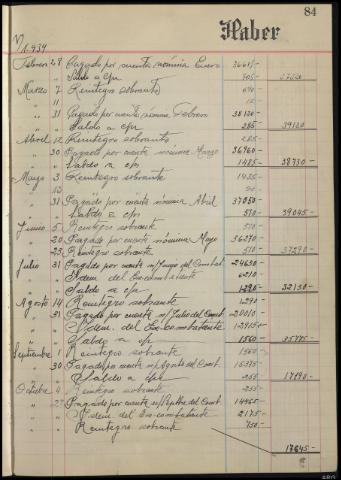 84
Haber
1.939
Febrero 28 Pagado por cuenta nómina Enero 36615-
" " Saldo a c/n 705- 37320
Marzo 7 Reintegro sobrante 690-
" 11 " " 15-
" 31 Pagado por cuenta nómina Febrero 38130-
" " Saldo a c/n 285- 39120
Abril 12 Reintegro sobrante 285-
" 30 Pagado por cuenta nómina Marzo 36960-
" " Saldo a c/n 1485- 38730-
Mayo 3 Reintegro sobrante
" 13 " "
" 31 Pagado por cuenta nómina Abril 37050-
" " Saldo a c/n 510- 39045-
Junio 5 Reintegro sobrante 510-
" 20 Pagado por cuenta nómina Mayo 36270-
" 23 Reintegro sobrante 510- 37290-
Julio 31 Pagado por cuenta n/Junio del Combat. 24630-
" " Idem. del Ex-combatiente 6210-
" " Saldo a c/n 1290- 32130-
Agosto 14 Reintegro sobrante 1290-
" 31 Pagado por cuenta n/Julio del Comt. 20010-
" " Idem. del Ex-combatiente 12915-
" " Saldo a c/n 1560- 35775-
Septiembre 1 Reintegro sobrante 1560-
" 30 Pagado por cuenta n/Agosto del Comt. 15375-
" " Saldo a c/n 255- 17190-
Octubre 4 Reintegro sobrante 255-
" 27 Pagado por cuenta n/Septbre del Comt. 14465-
" " Idem del Ex-combatiente 2175-
" " Reintegro sobrante 750-
17645-